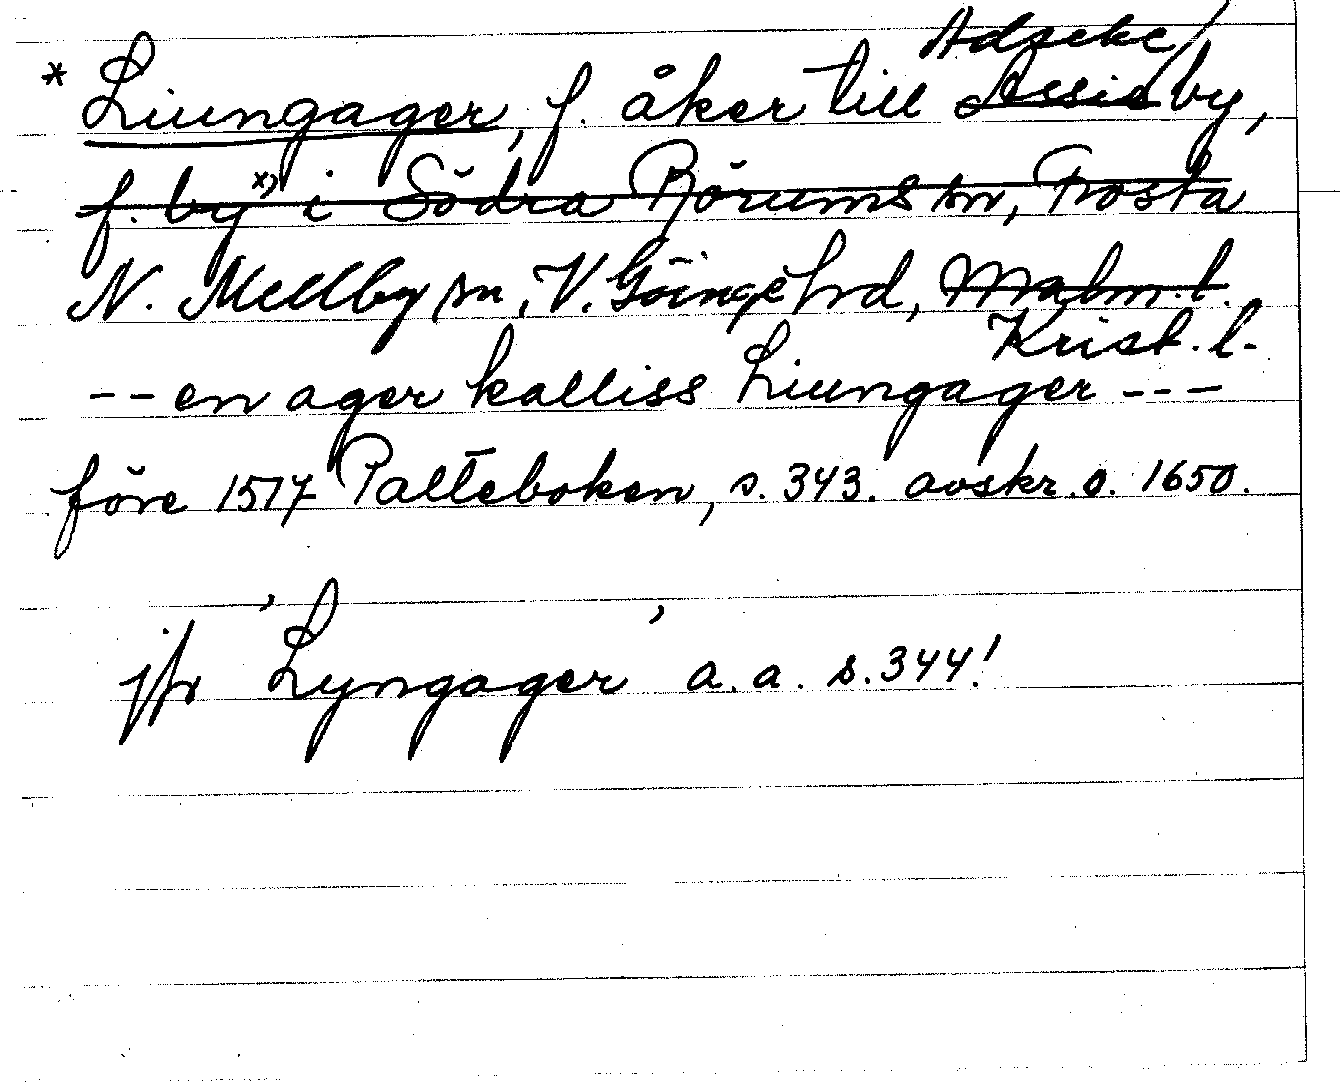 Adseke/
* Liungager, f. åker till Assieby,
f. by x) i Södra Rörums sn, Frosta
N. Mellby sn, V. Göinge hrd, Malm. l.
Krist. l.
-- en ager kalliss Liungager ---
före 1517 Palteboken, s. 343. avskr. o. 1650.
jfr 'Lyngager' a. a. s. 344!